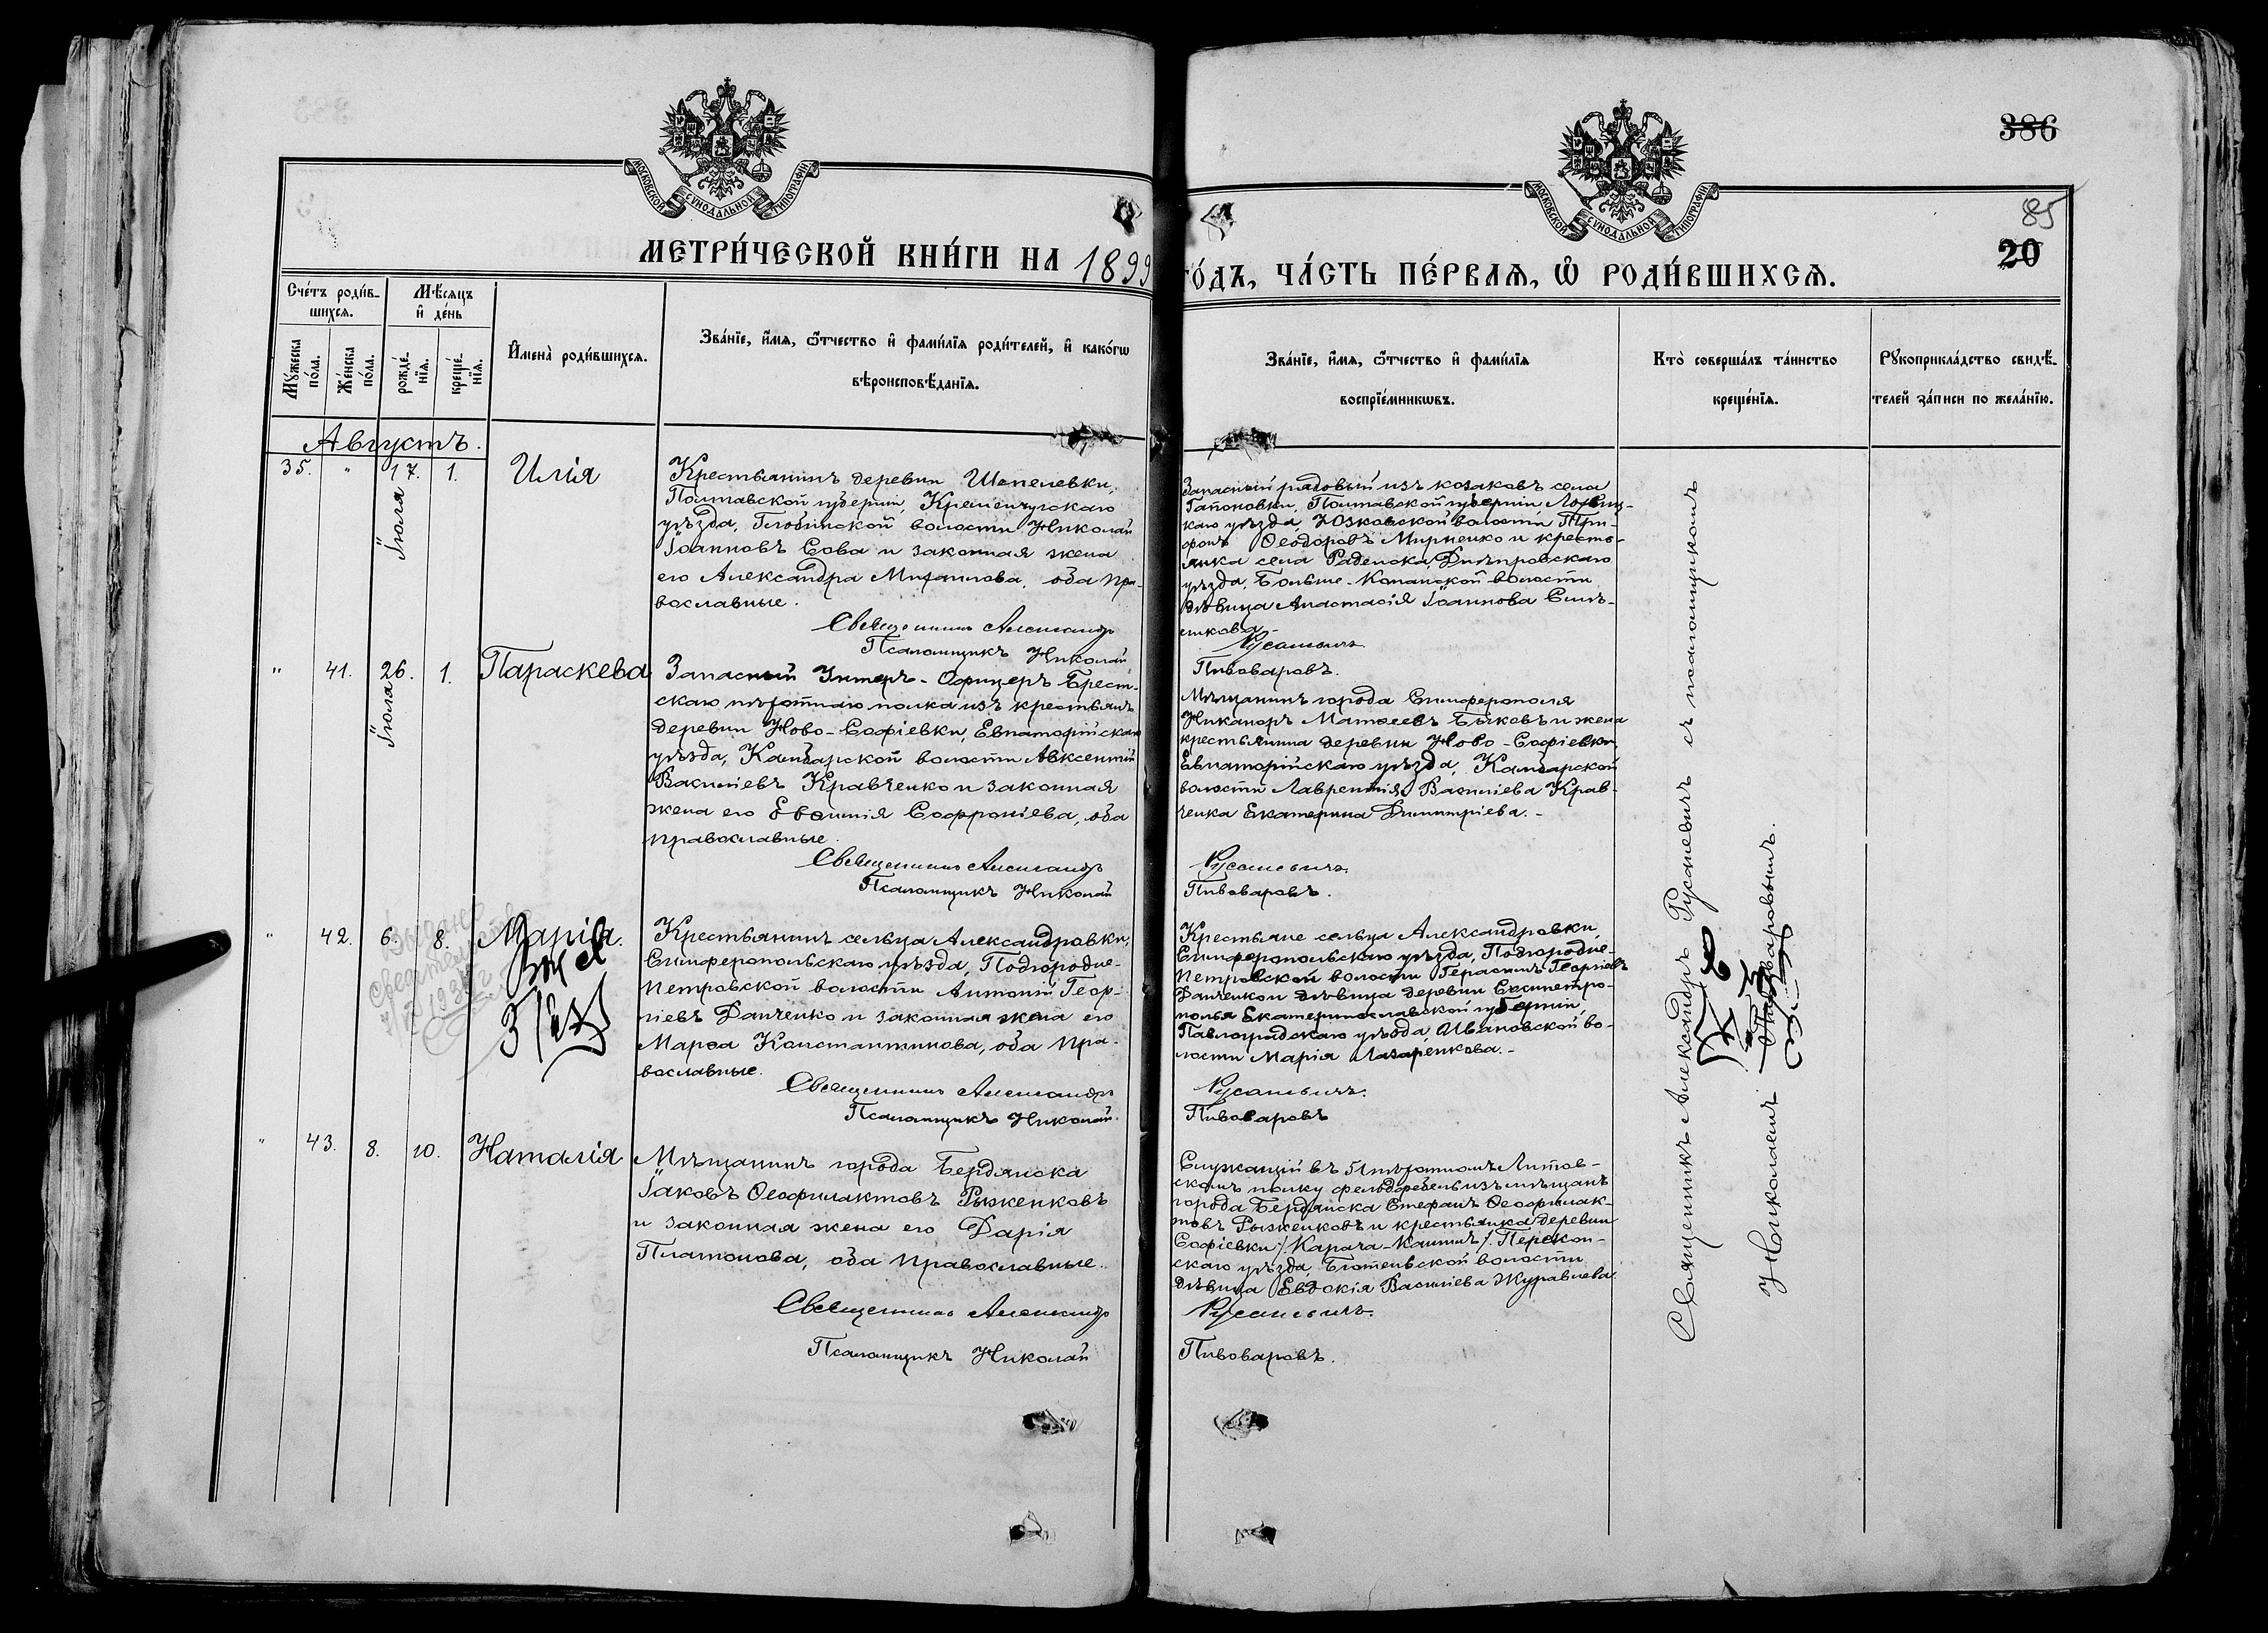 386
МОСКОВСКОЙ СѴНОДАЛЬНОЙ ТИПОГРАФІИ
МОСКОВСКОЙ СѴНОДАЛЬНОЙ ТИПОГРАФІИ
85
20
МЕТРИ́ЧЕСКОЙ КНИ́ГИ НА 1899
ГО́ДЪ, ЧА́СТЬ ПЕ́РВАѦ, Ѽ РОДИ́ВШИХСѦ.
Сче́тъ роди́в-
шихсѧ.
Мѣ́сяцъ
и҆ де́нь
Мꙋ́жеска
по́ла.
Же́нска
по́ла.
рожде́-
нїѧ.
креще́-
нїѧ.
И҆мена̀ роди́вшихсѧ.
Зва́нїе, и҆́мѧ, ѻ҆́тчество и҆ фами́лїѧ роди́телей, и҆ како́гѡ
вѣроисповѣ́данїѧ.
Зва́нїе, и҆́мѧ, ѻ҆́тчество и҆ фами́лїѧ
воспрїе́мникѡвъ.
Кто̀ соверша́лъ та́инство
креще́нїѧ.
Рꙋкоприкла́дство свидѣ́-
телей за́писи по жела́нїю.
Августъ.
35. " 17. Іюля 1. Илія
Крестьянинъ деревни Шепелевки,
Полтавской губерніи, Кременчугскаго
уѣзда, Глобинской волости Николай
Іоанновъ Сова и законная жена
его Александра Михаилова, оба пра-
вославные.
Священникъ Александръ
Псаломщикъ Николай
Запасный рядовый изъ козаковъ села
Гапоновки, Полтавской губерніи Лохвиц-
каго уѣзда Юсковской волости Три-
фонъ Ѳеодоровъ Мирненко и кресть-
янка села Раденска, Днѣпровскаго
уѣзда, Больше-Копанской волости
дѣвица Анастасія Іоаннова Синь-
Русаневичъ
Пивоваровъ.
" 41. 26. Іюля 1. Параскева
Запасный Унтеръ-Офицеръ Брест-
скаго пѣхотнаго полка изъ крестьянъ
деревни Ново-Софіевки, Евпаторійскаго
уѣзда, Камбарской волости Авксентій
Васильевъ Кравченко и законная
жена его Евѳимія Софроніева, оба
православные.
Священникъ Александръ
Псаломщикъ Николай
Мѣщанинъ города Симферополя
Никаноръ Матѳеевъ Быковъ и жена
крестьянина деревни Ново-Софіевки,
Евпаторійскаго уѣзда, Камбарской
волости Лаврентія Васильева Крав-
ченка Екатерина Димитріева.-
Русаневичъ.
Пивоваровъ.
" 42. 6. 8. Марія.
Крестьянинъ сельца Александровки,
Симферопольскаго уѣзда, Подгородне-
Петровской волости Антоній Геор-
гіевъ Данченко и законная жена его
Марѳа Константинова, оба пра-
вославные.
Священникъ Александръ
Псаломщикъ Николай.
Крестьяне сельца Александровки,
Симферопольскаго уѣзда, Подгородне-
Петровской волости Герасимъ Георгіевъ
Данченко и дѣвица деревни
полья Екатеринославской губерніи
Павлоградскаго уѣзда, Ивановской во-
лости Марія Лазаренкова.-
Русаневичъ.
Пивоваровъ
" 43. 8. 10. Наталія
Мѣщанинъ города Бердянска
Іаковъ Ѳеофилактовъ Рыженковъ
и законная жена его Дарія
Платонова, оба православные.
Священникъ Александръ
Псаломщикъ Николай
Служащій въ 51 пѣхотномъ Литов-
скомъ полку фельдфебель изъ мѣщанъ
города Бердянска Стефанъ Ѳеофилак-
товъ Рыженковъ и крестьянка деревни
Софіевки /Карача-Кангилъ/. Перекоп-
скаго уѣзда, Бютеньской волости
дѣвица Евдокія Васильева Журавлева.
Русаневичъ.
Пивоваровъ.
Священникъ Александръ Русаневичъ съ псаломщикомъ
Николаемъ Пивоваровымъ.